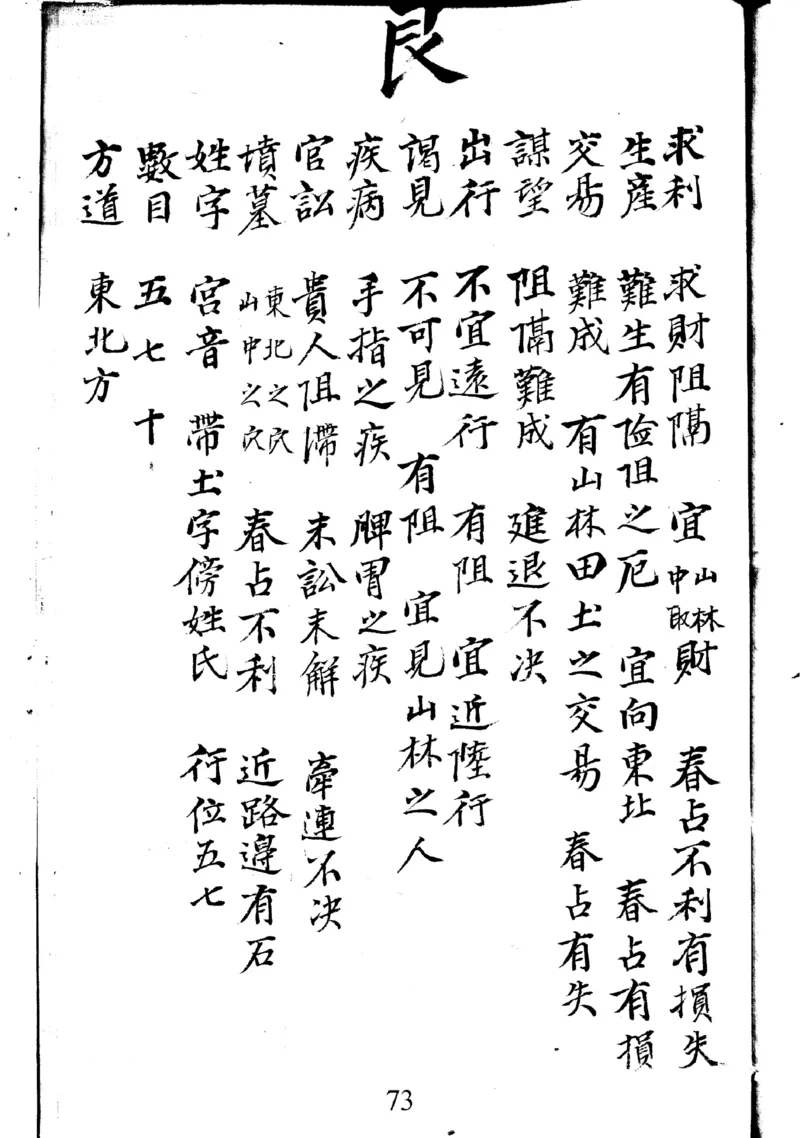 艮
求利 求財阻隔 宜山林中取財 春占不利有損失
生產 難生有險阻之厄 宜向東北 春占有損
交易 難成 有山林田土之交易 春占有失
謀望 阻隔難成 進退不决
出行 不宜遠行 有阻 宜近陸行
謁見 不可見 有阻 宜見山林之人
疾病 手指之疾 脾胃之疾
官訟 貴人阻滯 未訟未解 牽連不决
墳墓 東北之穴山中之穴 春占不利 近路邊有石
姓字 宮音 帶土字傍姓氏 行位五七
數目 五七十
方道 東北方
73